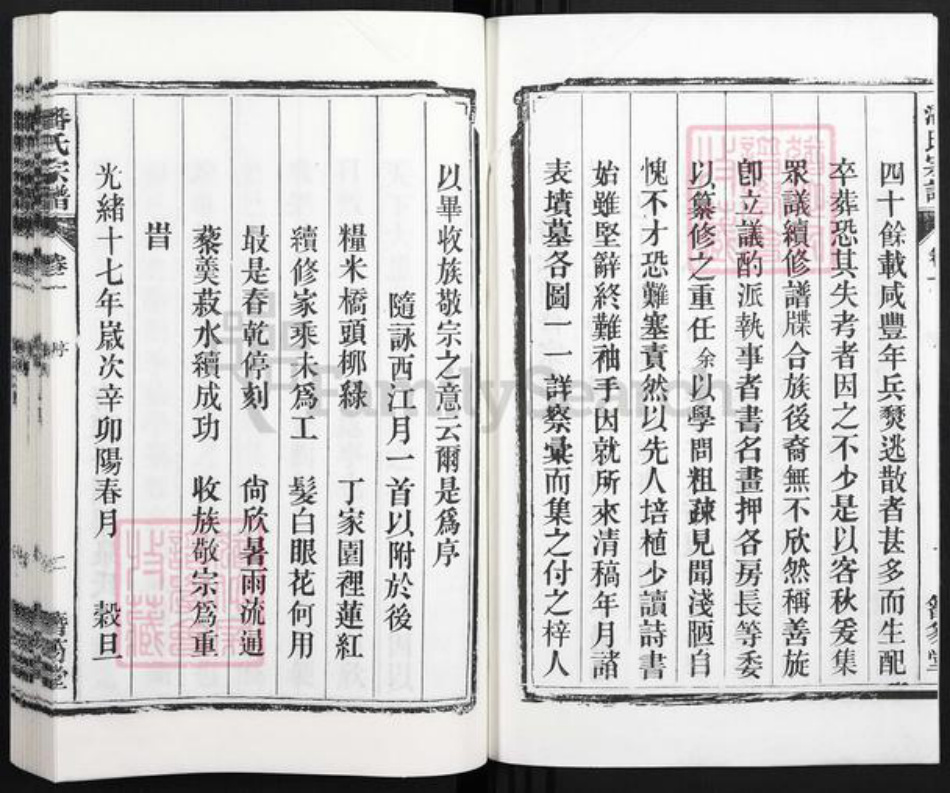 四十餘載咸豐年兵燹逃散者甚多而生配
卒葬恐其失考者因之不少是以客秋爰集
眾議續修譜牒合族後裔無不欣然稱善旋
卽立議酌派執事者書名畫押各房長等委
以纂修之重任余以學問粗疎見聞淺陋自
愧不才恐難塞責然以先人培植少讀詩書
始雖堅辭終難袖手因就所來清稿年月諸
表墳墓各圖一一詳察彙而集之付之梓人
以畢收族敬宗之意云爾是爲序
隨詠西江月一首以附於後
糧米橋頭柳綠 丁家園裡蓮紅
續修家乘未爲工 髮白眼花何用
最是春乾停刻 尙欣暑雨流通
藜羹菽水續成功 收族敬宗爲重
旹
光緒十七年嵗次辛卯陽春月 穀旦
潘氏宗譜 卷一 序
FamilySearch